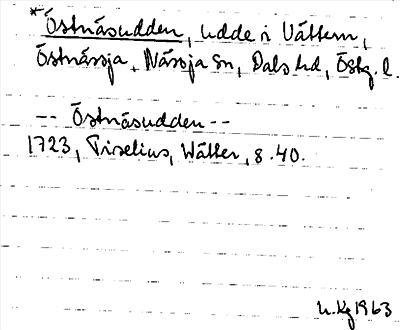 *Östnäsudden, udde i Vättern,
Östnässja, Nässja sn, Dals hd, Östg. l.
-- Östnäsudden --
1723, Tiselius, Wätter, s. 40.
1963